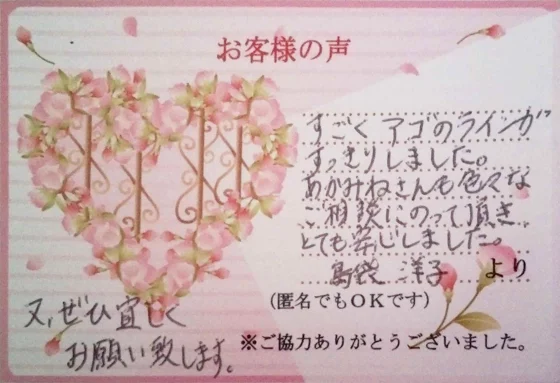 お客様の声
すごくアゴのラインが
すっきりしました。
あかみねさんも色々な
ご相談にのって頂き
とても安心しました。
島袋 洋子 より
(匿名でもOKです)
又、ぜひ宜しく
お願い致します。
※ご協力ありがとうございました。